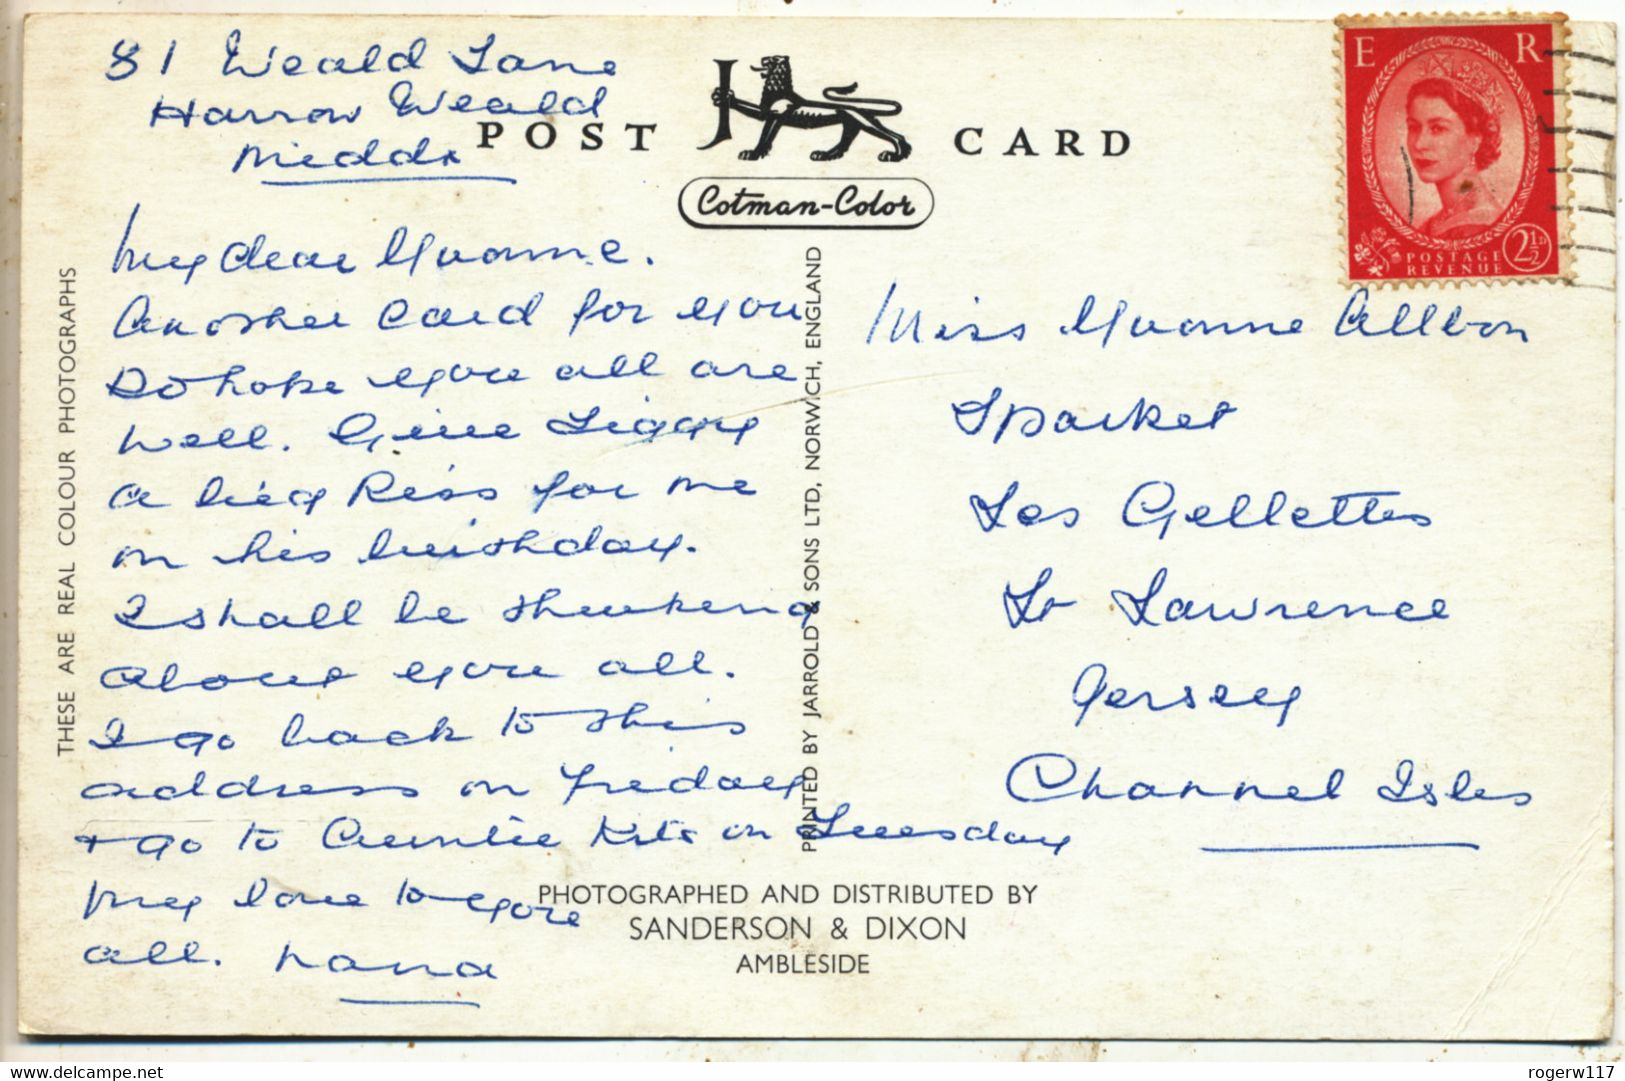 81 Weald Lane
Harrow Weald
Middx
POST CARD
Cotman-Color
E R
POSTAGE
REVENUE
2½D
My dear Yvonne.
Another card for you
Do hope you all are
well. Give Liggy
a big kiss for me
on his birthday.
I shall be thinking
about you all.
I go back to this
address on Friday
+ go to Auntie Kits on Tuesday
My love to you
all. Nana
Miss Yvonne Allbon
Sparket
Les Gellettes
St Lawrence
Jersey
Channel Isles
THESE ARE REAL COLOUR PHOTOGRAPHS
PRINTED BY JARROLD & SONS LTD, NORWICH, ENGLAND
PHOTOGRAPHED AND DISTRIBUTED BY
SANDERSON & DIXON
AMBLESIDE
https://www.delcampe.net
rogerw117